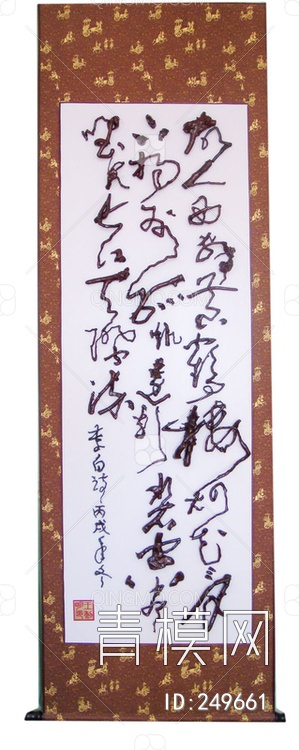 故人西辞黄鶴楼烟花三月
下揚州孤帆遠影碧空尽
唯見长江天際流
李白詩丙戌年
青模网
ID:249661